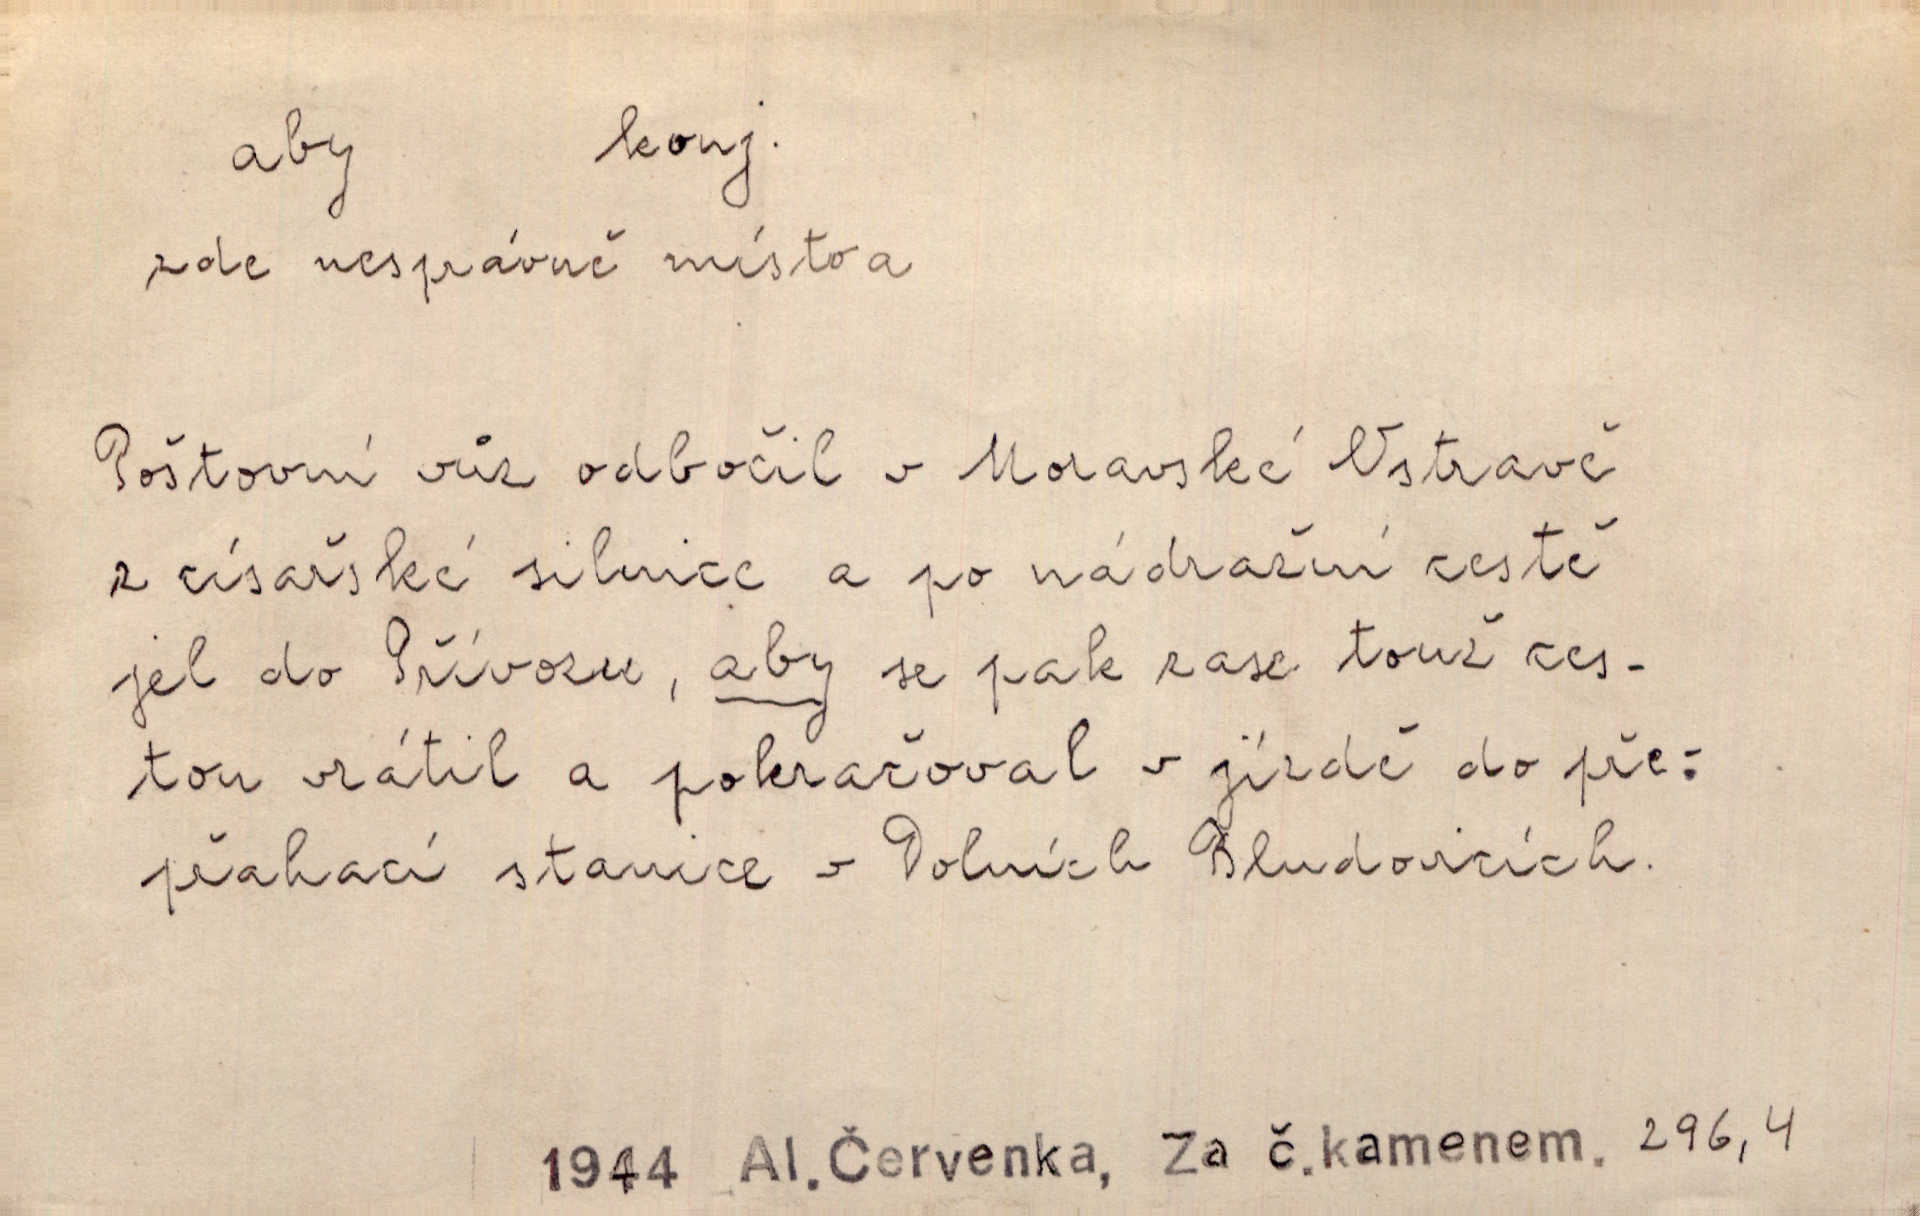 aby konj.
zde nesprávně místo a
Poštovní vůz odbočil v Moravské Ostravě
z císařské silnice a po nádražní cestě
jel do Přívozu, aby se pak zase touž ces-
tou vrátil a pokračoval v jízdě do pře-
přahací stanice v Dolních Bludovicích.
1944 Al. Červenka, Za č. kamenem. 296,4